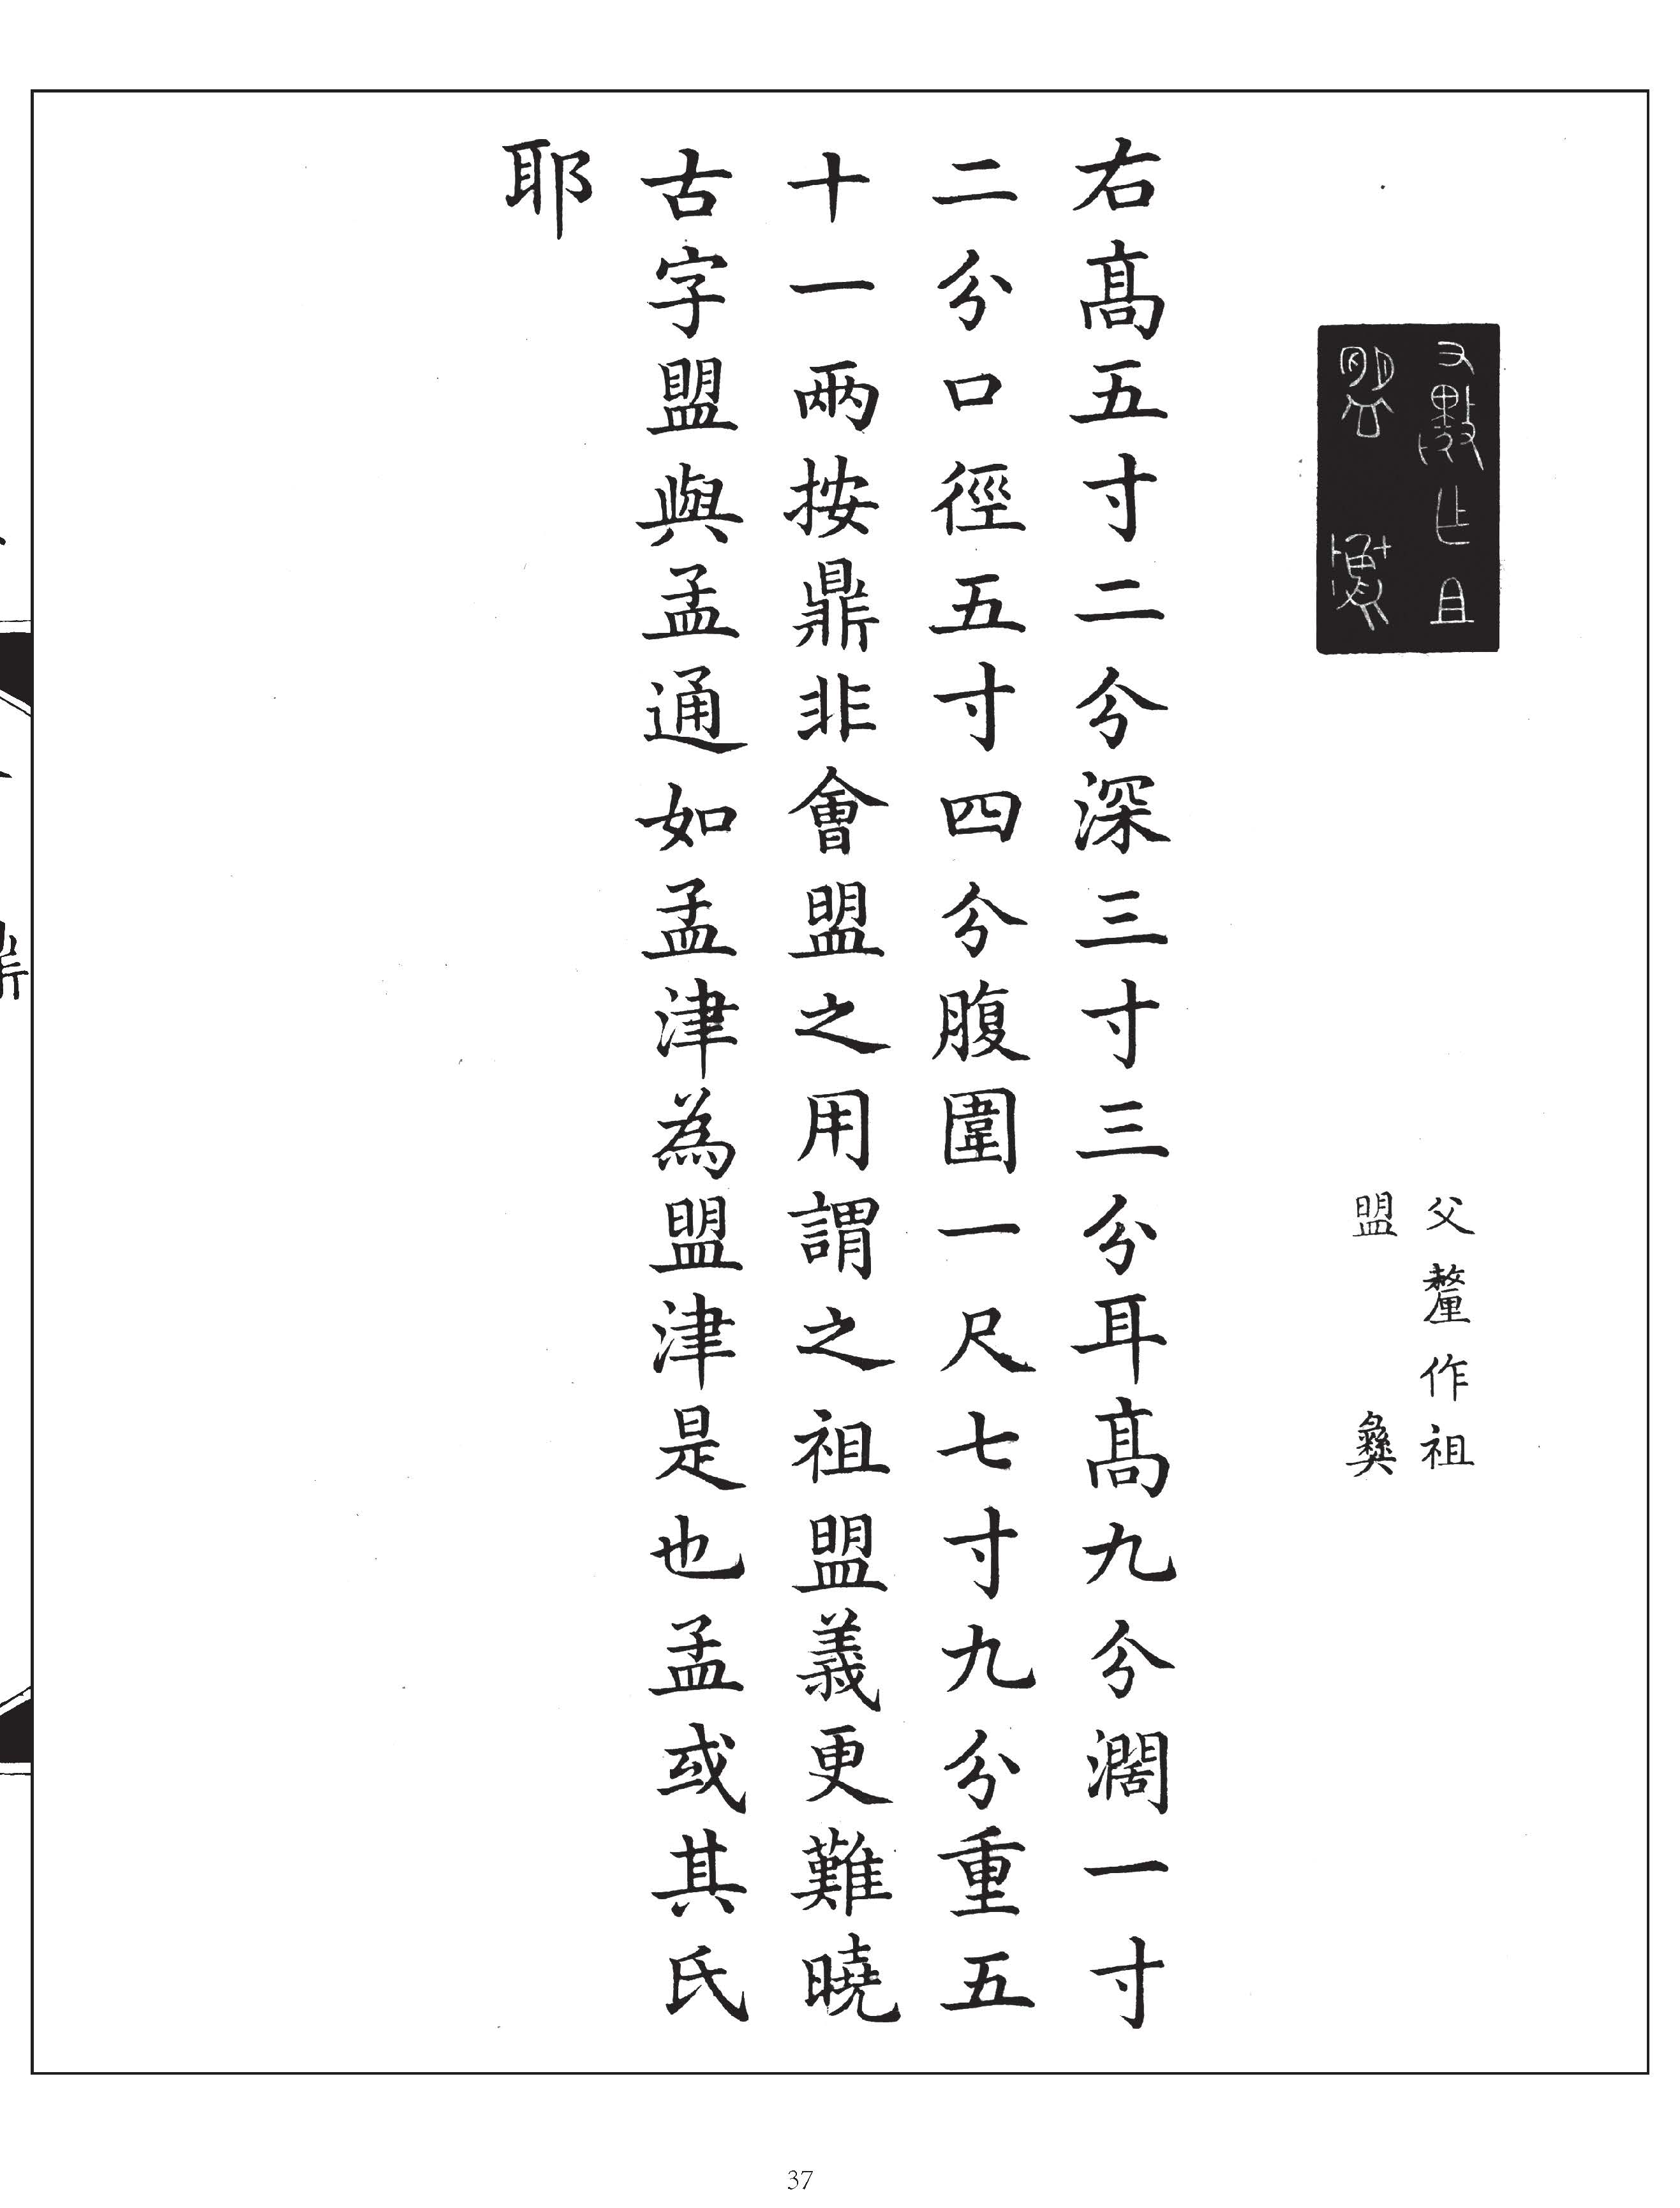 父釐作祖
盟彝
右高五寸二分深三寸三分耳高九分濶一寸
二分口徑五寸四分腹圍一尺七寸九分重五
十一兩按鼎非會盟之用謂之祖盟義更難曉
古字盟與孟通如孟津為盟津是也孟或其氏
耶
37